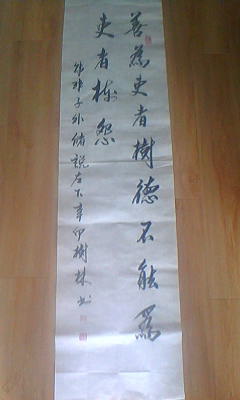 善為吏者樹德不能為
吏者樹怨
韓非子外儲說左下辛卯樹林書